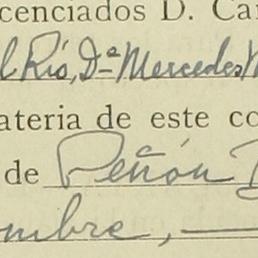 cenciados D. Car
l Río, D.ª Mercedes
ateria de este co
de Peñón
mbre,